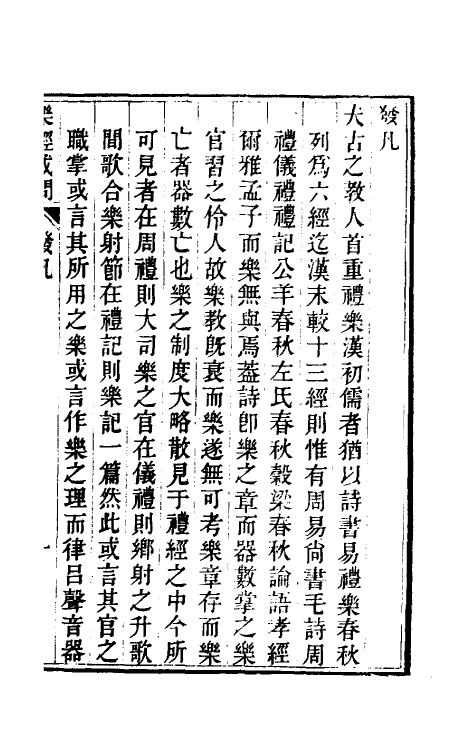 發凡
大古之教人首重禮樂漢初儒者猶以詩書易禮樂春秋
列爲六經迄漢末較十三經則惟有周易尙書毛詩周
禮儀禮禮記公羊春秋左氏春秋穀梁春秋論語孝經
爾雅孟子而樂無與焉葢詩卽樂之章而器數掌之樂
官習之伶人故樂教旣衰而樂遂無可考樂章存而樂
亡者器數亡也樂之制度大略散見于禮經之中今所
可見者在周禮則大司樂之官在儀禮則鄉射之升歌
間歌合樂射節在禮記則樂記一篇然此或言其官之
職掌或言其所用之樂或言作樂之理而律呂聲音器
樂經或問 發凡 一